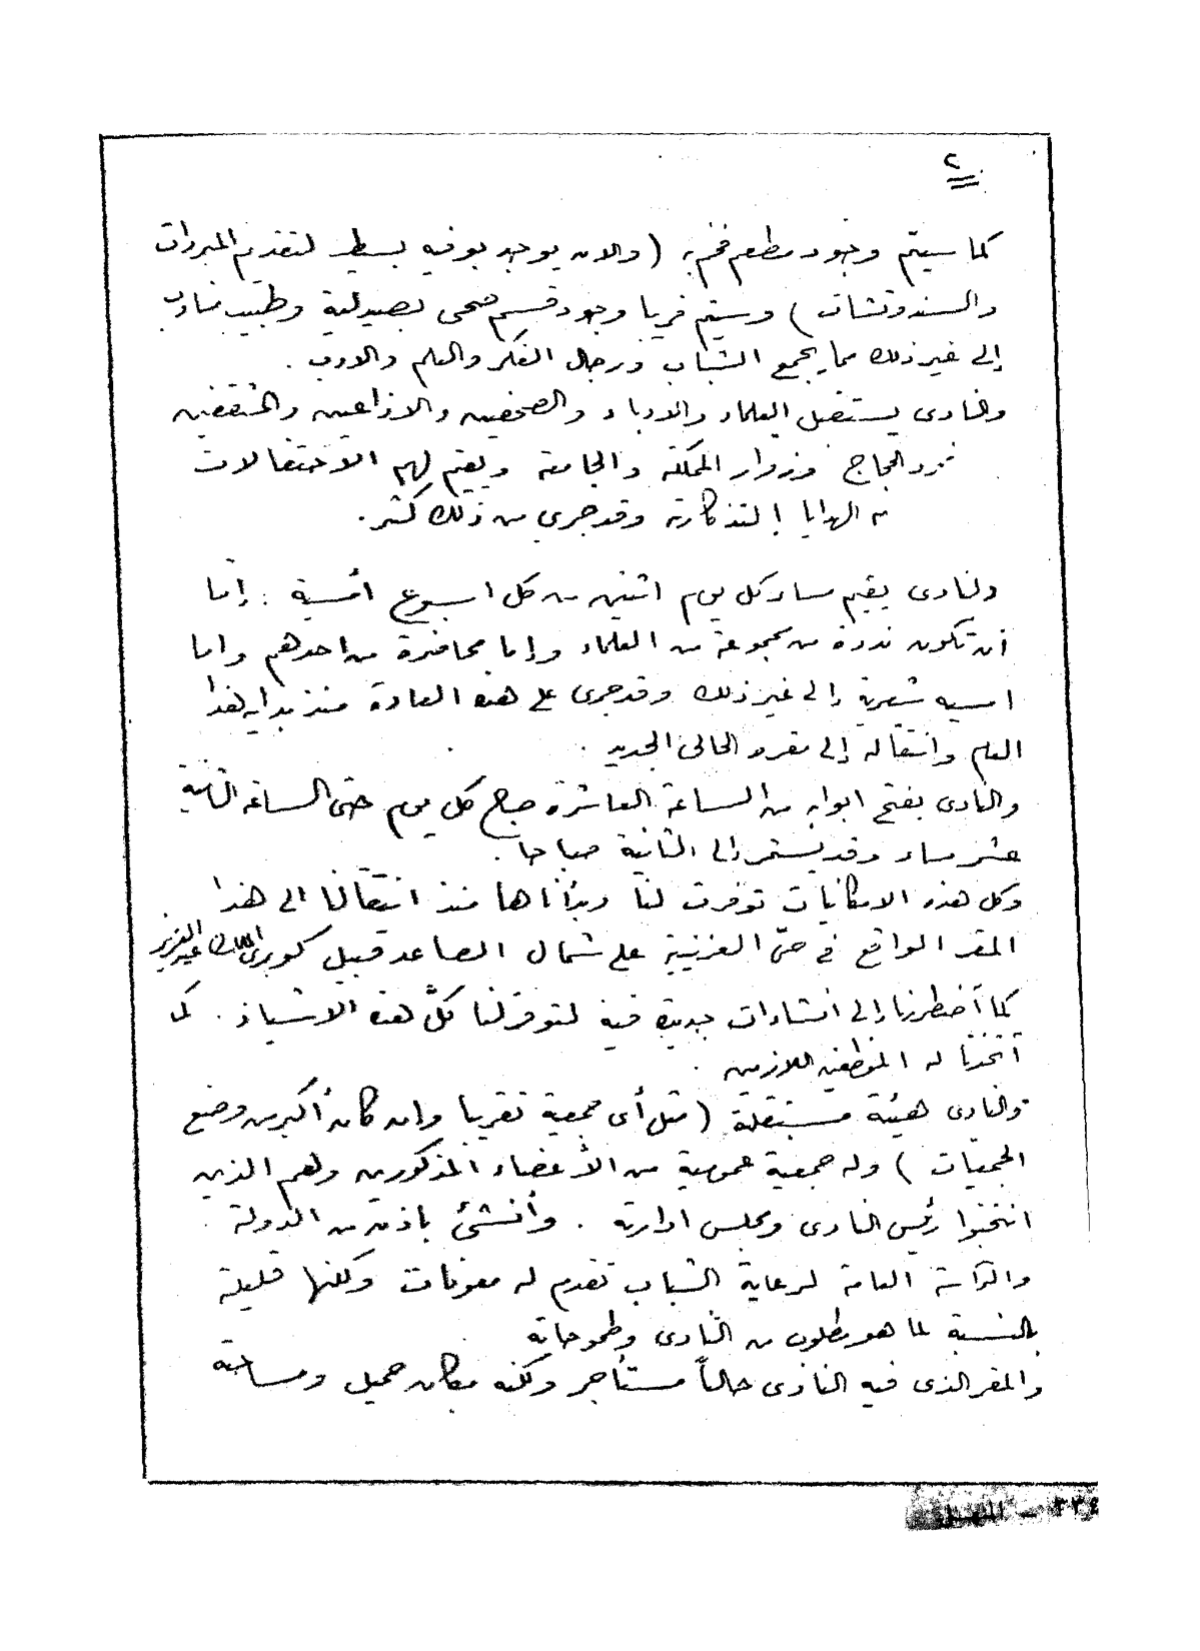 ٢
كما سيتم وجود مطعم فخم به (والان يوجد بوفيه بسيط لتقديم المبردات
والسندوتشات) وسيتم قريبا وجود قسم صحى بصيدلية وطبيب مناوب
إلى غير ذلك مما يجمع الشباب ورجال الفكر والعلم والادب .
والنادى يستقبل العلماء والادباء والصحفيين والاذاعيين والمثقفين
الحجاج وزوار المملكة والجامعة ويقيم لهم الاحتفالات
الهدايا التذكارية وقد جرى من ذلك كثير .
والنادى يقيم مساء كل يوم اثنين من كل اسبوع أمسية : إمّا
أن تكون ندوة من مجموعة من العلماء وإما محاضرة من احدهم واما
امسيه شعرية إلى غير ذلك وقد جرى على هذه العادة منذ بداية هذا
العام وانتقاله إلى مقره الحالى الجديد .
والنادى يفتح ابوابه من الساعة العاشرة صباح كل يوم حتى الساعة الثانية
عشر مساء وقد يستمر إلى الثانية صباحا .
وكل هذه الامكانيات توفرت لنا وبدأناها منذ انتقالنا الى هذا
المقر الواقع فى حىّ العزيزية على شمال الصاعد قبيل كوبرى الملك عبد العزيز
كما أضطررنا إلى انشاءات جديدة فيه لتوفر لنا كلّ هذه الاشياء . كما
أتخذنا له الموظفين اللازمين .
والنادى هيئة مستقلة (مثل أى جمعية تقريبا وان كان أكبر من وضع
الجمعيات) وله جمعية عمومية من الأعضاء المذكورين وهم الذين
انتخبوا رئيس النادى ومجلس ادارته . وأنشئ باذن من الدولة .
والرآسة العامة لرعاية الشباب تقدم له معونات ولكنها قليلة
بالنسبة لما هو مطلوب من النادى وطموحاته
والمقر الذى فيه النادى حالياً مستأجر ولكنه مكان جميل ومساحته
٣٣٤ - المنهل